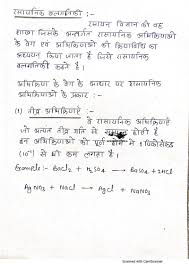 रासायनिक बलगतिकी :-
रसायन विज्ञान की वह
शाखा जिसके अन्तर्गत रासायनिक अभिक्रियाओं
के वेग एवं अभिक्रियाओं की क्रियाविधि का
अध्ययन किया जाता है जिसे रासायनिक
बलगतिकी कहते हैं।
अभिक्रिया के वेग के आधार पर रासायनिक
अभिक्रियाओं के प्रकार :-
(1) तीव्र अभिक्रियाएँ :- वे रासायनिक अभिक्रियाएँ
जो अत्यन्त तीव्र गति से सम्पन्न होती है
इन अभिक्रियाओं को पूर्ण होने में 1 पिकोसेकंड
(10⁻¹²) से भी कम लगता है।
Example:- BaCl₂ + H₂SO₄ → BaSO₄ + 2HCl
AgNO₃ + NaCl → AgCl + NaNO₃
Scanned with CamScanner